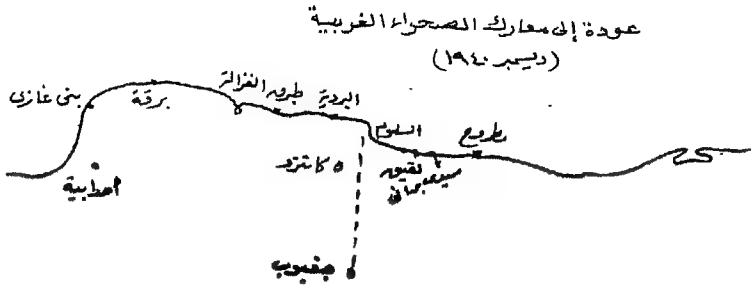 عودة إلى معارك الصحراء الغربية
(ديسمبر ١٩٤٠)
بنى غازى
برقة
الغزالة
طبرق
البردية
السلوم
مطروح
بقبق
سيدى برانى
كابتزو
اجدابية
جغبوب